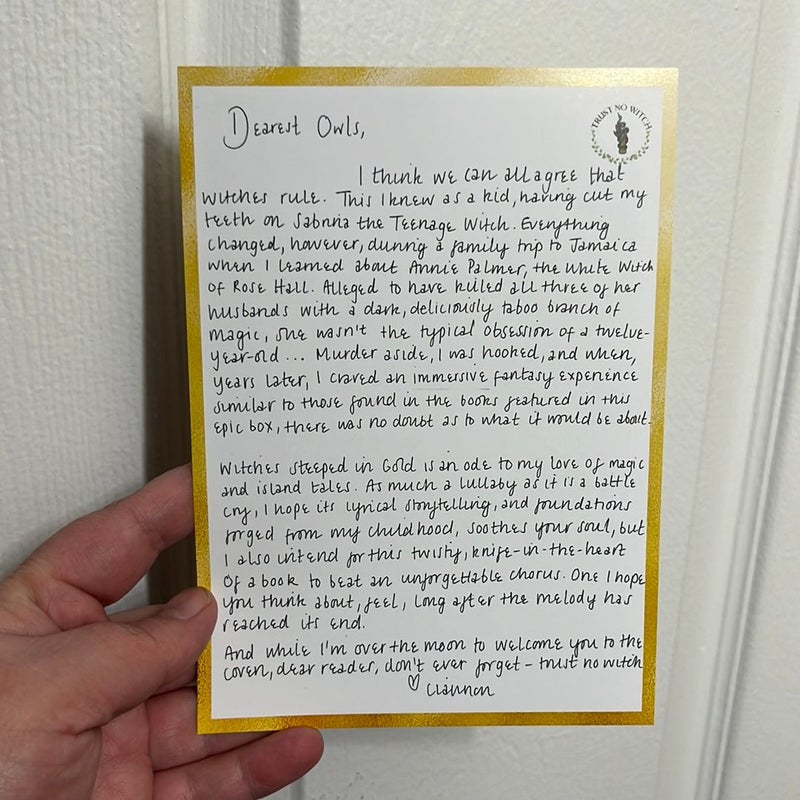 TRUST NO WITCH
Dearest Owls,
I think we can all agree that
witches rule. This I knew as a kid, having cut my
teeth on Sabrina the Teenage Witch. Everything
changed, however, during a family trip to Jamaica
when I learned about Annie Palmer, the White Witch
of Rose Hall. Alleged to have killed all three of her
husbands with a dark, deliciously taboo branch of
magic, she wasn't the typical obsession of a twelve-
year-old... Murder aside, I was hooked, and when,
years later, I craved an immersive fantasy experience
similar to those found in the books featured in this
epic box, there was no doubt as to what it would be about.
Witches Steeped in Gold is an ode to my love of magic
and island tales. As much a lullaby as it is a battle
cry, I hope its lyrical storytelling, and foundations
forged from my childhood, soothes your soul, but
I also intend for this twisty, knife-in-the-heart
of a book to beat an unforgettable chorus. One I hope
you think about, feel, long after the melody has
reached its end.
And while I'm over the moon to welcome you to the
coven, dear reader, don't ever forget - trust no witch
♡ Ciannon